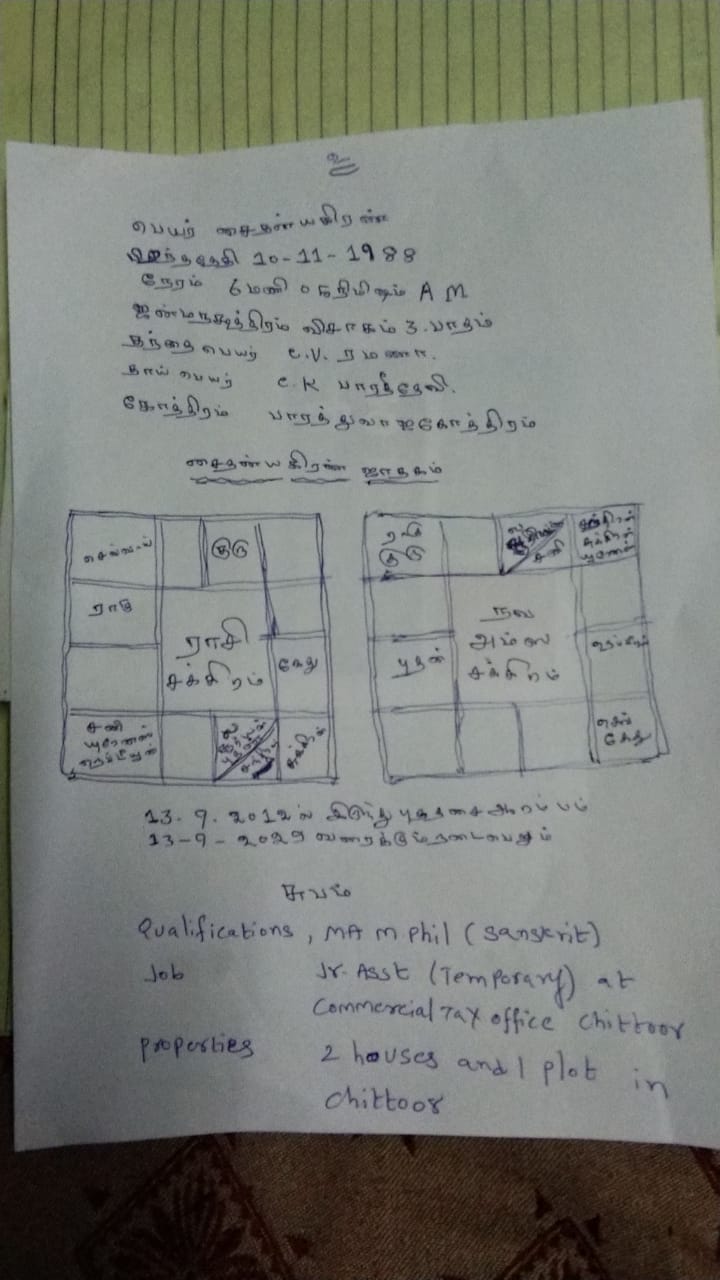 உ
பெயர் சைதன்யகிரண்
பிறந்ததேதி 10-11-1988
நேரம் 6 மணி 05 நிமிஷம் A M
ஜன்மநக்ஷத்திரம் விசாகம் 3. பாதம்
தந்தை பெயர் C.V. ரமணா.
தாய் பெயர் C.K பாரதீதேவி.
கோத்திரம் பாரத்துவாஜகோத்திரம்
சைதன்யகிரண் ஜாதகம்
செவ்வாய்
குரு
ராகு
ராசி
சக்கிரம்
கேது
சனி
யுரேனஸ்
நெப்டியூன்
ல
சுக்கிரன்
ரவி
குரு
ல
சனி
சந்திரன்
சுக்கிரன்
யுரேனஸ்
நவ
அம்ஸ
சக்கிரம்
புதன்
செவ்
கேது
13.9.2012ல் இருந்து புததசை ஆரம்பம்
13-9-2029 வரைக்கும் நடைபெறும்
சுபம்
Qualifications, MA M Phil (Sanskrit)
Job Jr. Asst (Temporary) at
Commercial Tax office Chittoor
Properties 2 houses and 1 plot in
Chittoor